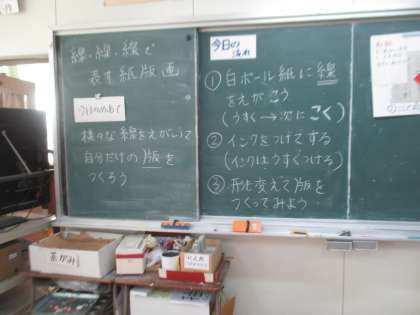 線・線・線で
表す紙版画
今日のめあて
様々な線をえがいて
自分だけの版を
つくろう
今日の流れ
①白ボール紙に線
をえがこう
(うすく→次にこく)
②インクをつけてする
(インクはうすくつける)
③形を変えて版を
つくってみよう